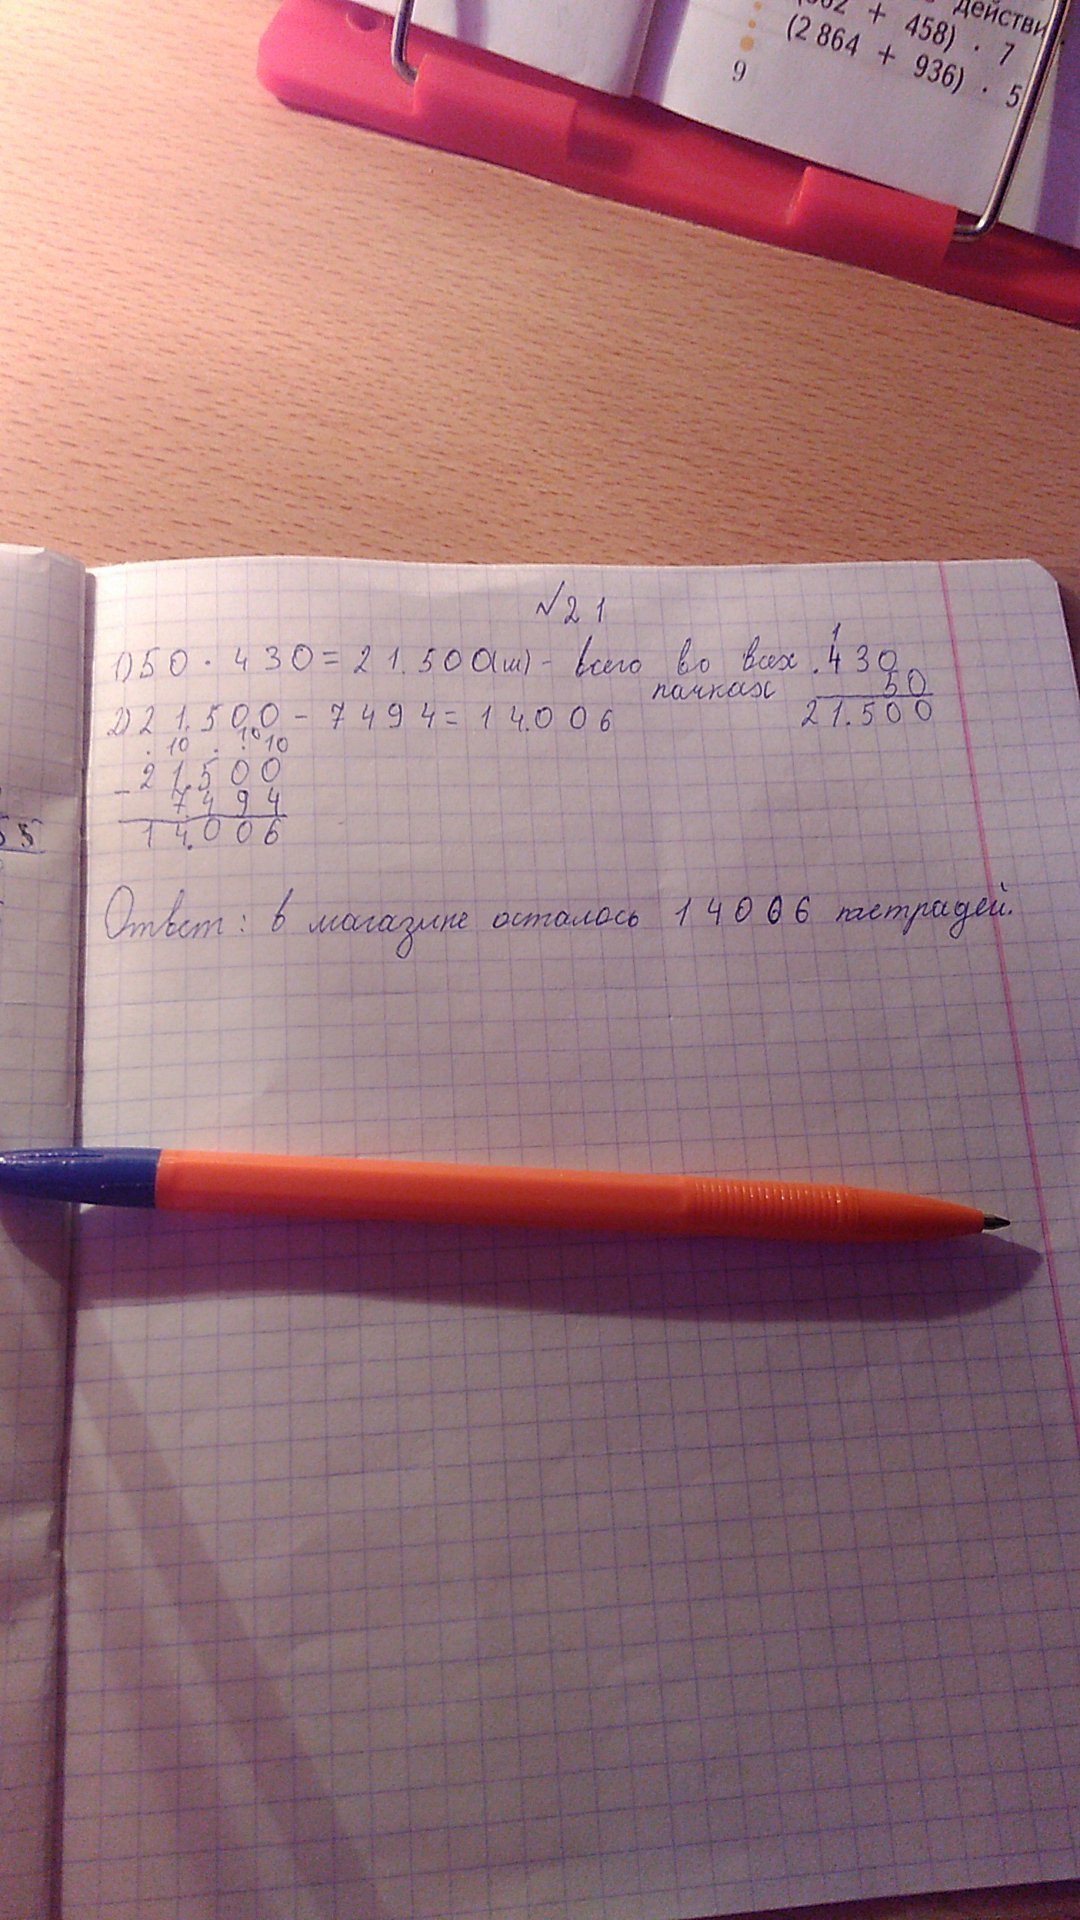 действи
+ 458) · 7
(2 864 + 936) · 5
9
55
№21
1) 50 · 430 = 21.500(ш) - всего во всех пачках
1
430
50
21.500
2) 21.500 - 7494 = 14.006
. 10 . . 10 10
- 21.500
7494
14.006
Ответ: в магазине осталось 14006 тетрадей.